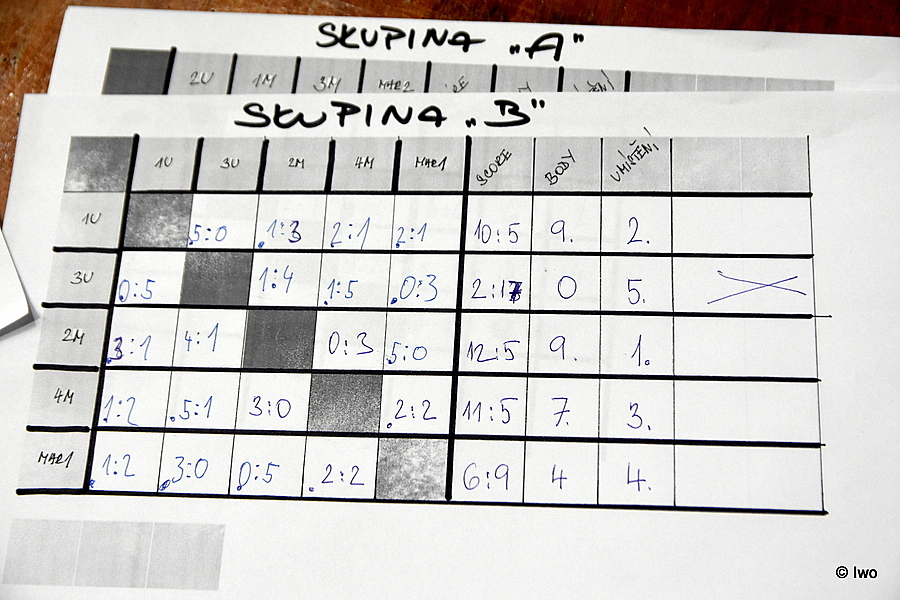 SKUPINA „A"
2U 1M 3M MAR2
SKUPINA „B"
1U 3U 2M 4M MAR1 SCORE BODY UMÍSTĚNÍ
1U 5:0 1:3 2:1 2:1 10:5 9. 2.
3U 0:5 1:4 1:5 0:3 2:17 0 5.
2M 3:1 4:1 0:3 5:0 12:5 9. 1.
4M 1:2 5:1 3:0 2:2 11:5 7. 3.
MAR1 1:2 3:0 0:5 2:2 6:9 4 4.
© Iwo